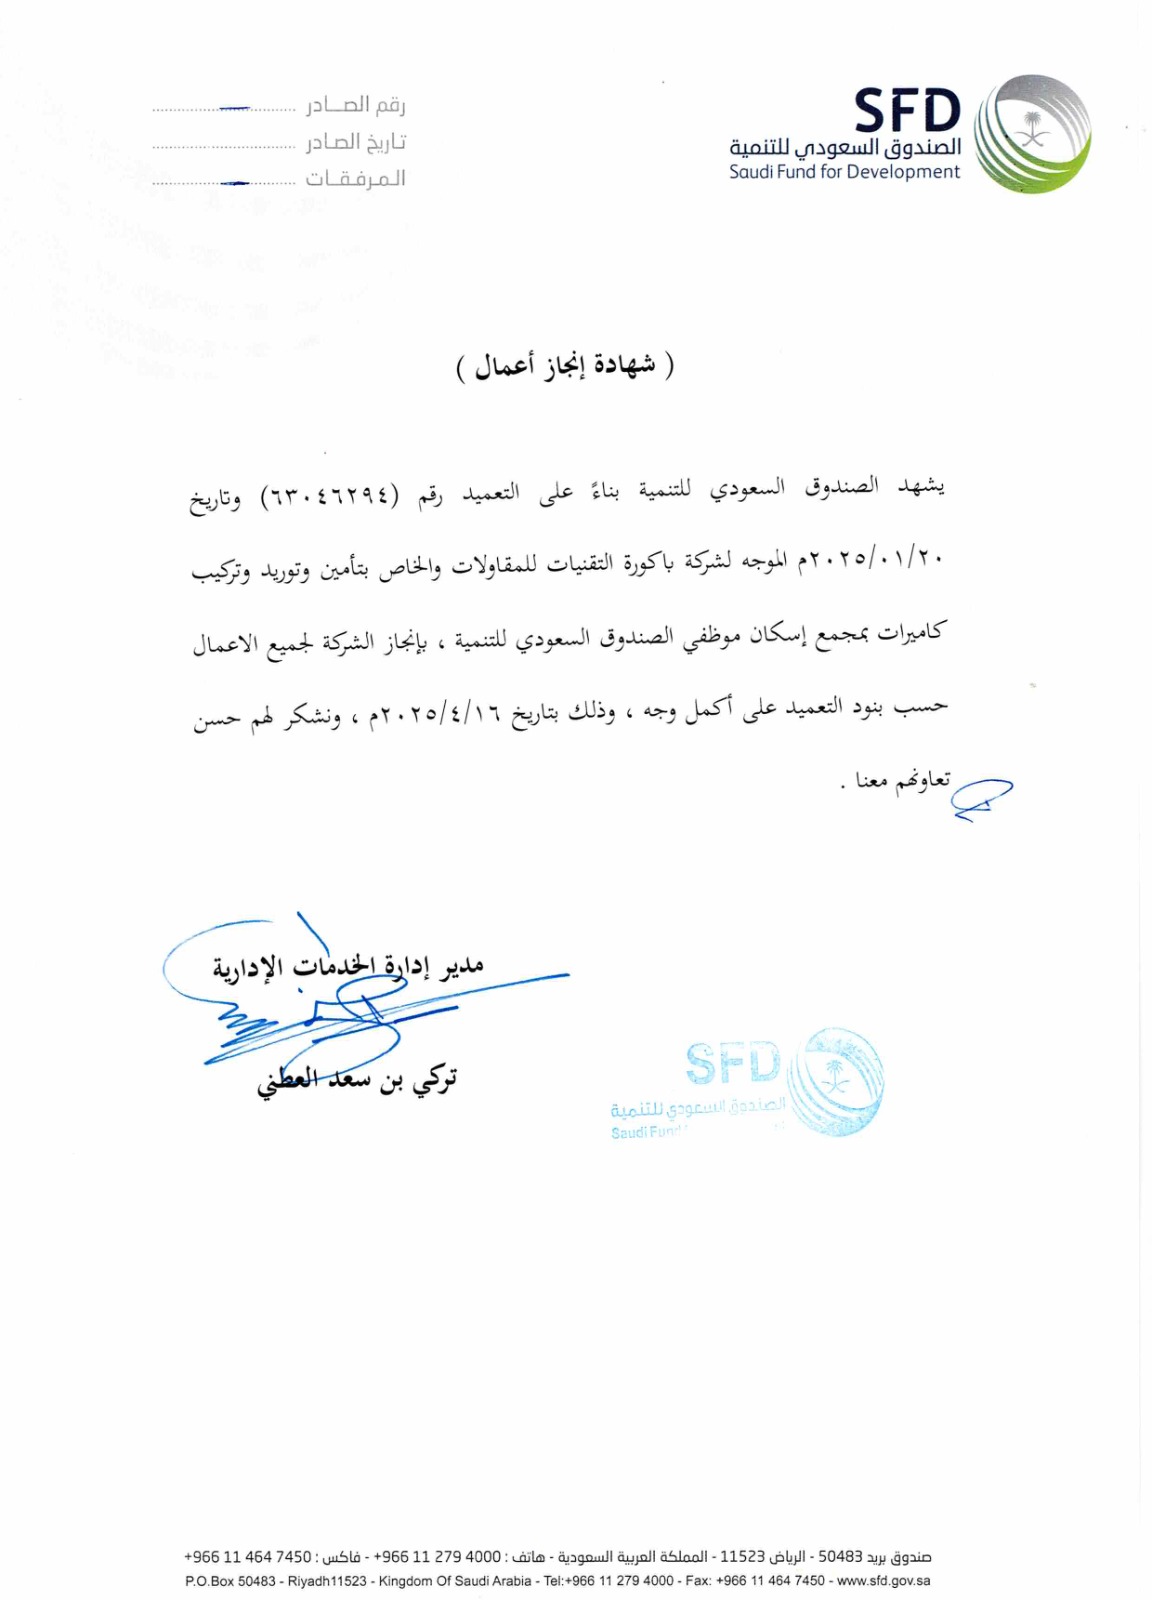 رقم الصـادر
تاريخ الصادر
المرفقات
SFD
الصندوق السعودي للتنمية
Saudi Fund for Development
( شهادة إنجاز أعمال )
يشهد الصندوق السعودي للتنمية بناءً على التعميد رقم (٦٣٠٤٦٢٩٤) وتاريخ
٢٠٢٥/٠١/٢٠م الموجه لشركة باكورة التقنيات للمقاولات والخاص بتأمين وتوريد وتركيب
كاميرات بمجمع إسكان موظفي الصندوق السعودي للتنمية ، بإنجاز الشركة لجميع الاعمال
حسب بنود التعميد على أكمل وجه ، وذلك بتاريخ ٢٠٢٥/٤/١٦م ، ونشكر لهم حسن
تعاونهم معنا .
مدير إدارة الخدمات الإدارية
تركي بن سعد العطني
SFD
الصندوق السعودي للتنمية
Saudi Fund
صندوق بريد 50483 - الرياض 11523 - المملكة العربية السعودية - هاتف : 4000 279 11 966+ - فاكس : 7450 464 11 966+
P.O.Box 50483 - Riyadh11523 - Kingdom Of Saudi Arabia - Tel:+966 11 279 4000 - Fax: +966 11 464 7450 - www.sfd.gov.sa